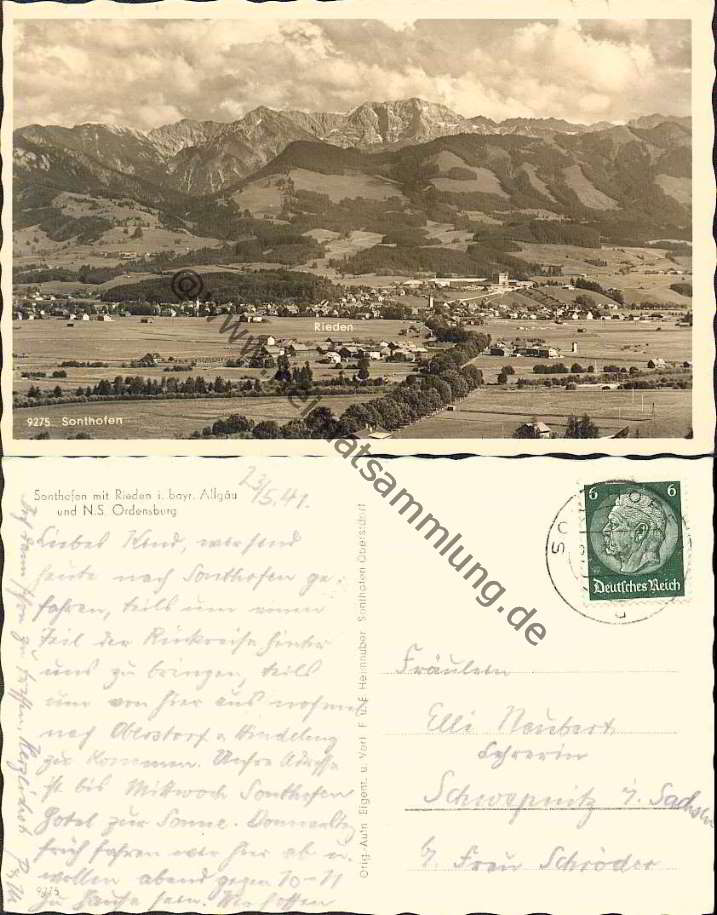 Rieden
9275 Sonthofen
© www.heimatsammlung.de
Sonthofen mit Rieden i. bayr. Allgäu
und N.S. Ordensburg
23/5.41.
Liebes Kind, wir sind
heute nach Sonthofen ge-
fahren, teils um einen
Teil der Rückreise hinter
uns zu bringen, teils
um von hier aus nochmal
nach Oberstdorf u. Hindelang
zu kommen. Unsre Adresse
ist bis Mittwoch Sonthofen
Hotel zur Sonne. Donnerstag
früh fahren wir hier ab u.
wollen abend gegen 10-11
zu Hause sein. Wir hoffen
9275
Orig.-Aufn. Eigent. u. Verl. F. u. E. Heimhuber Sonthofen Oberstdorf
6 6
Deutsches Reich
Fräulein
Elli Neubert
Lehrerin
Schwepnitz i. Sachsen
b/ Frau Schröder